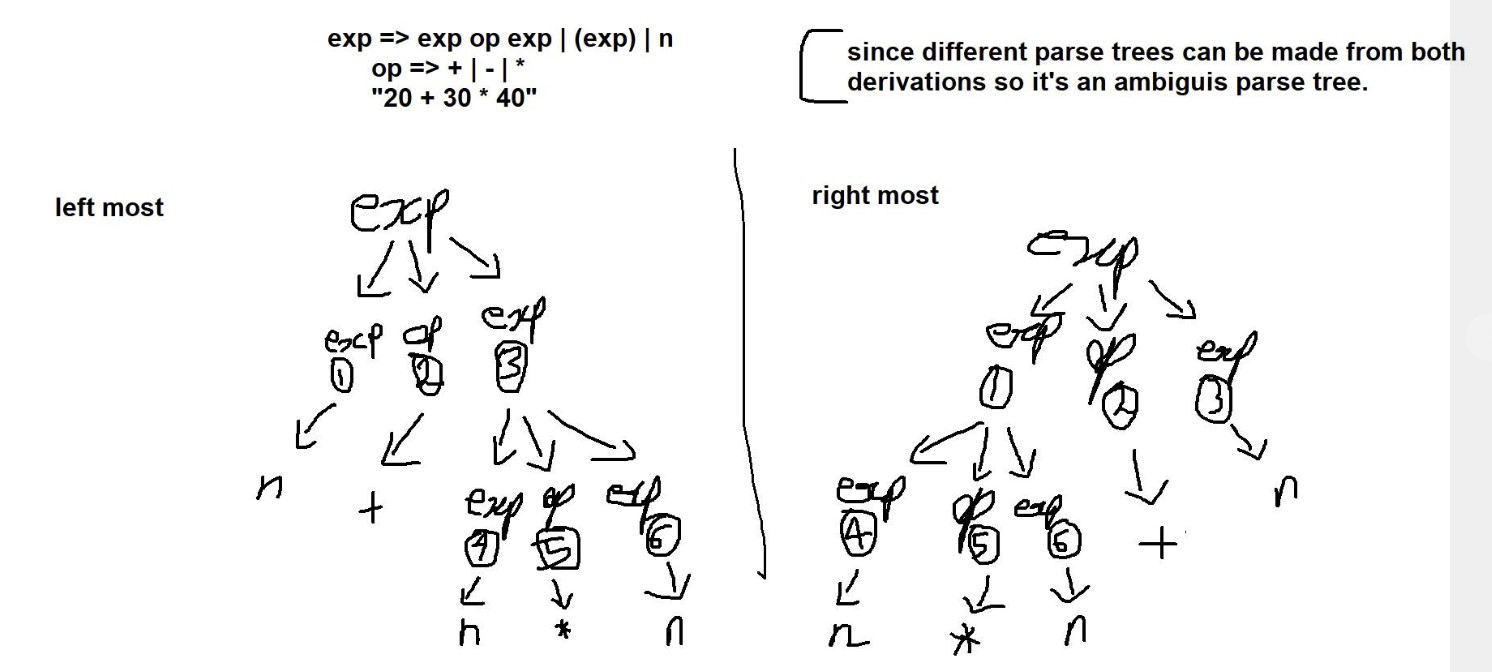 exp => exp op exp | (exp) | n
op => + | - | *
"20 + 30 * 40"
since different parse trees can be made from both
derivations so it's an ambiguis parse tree.
left most
exp
exp op exp
1 2 3
n + exp op exp
4 5 6
n * n
right most
exp
exp op exp
1 2 3
exp op exp + n
4 5 6
n * n